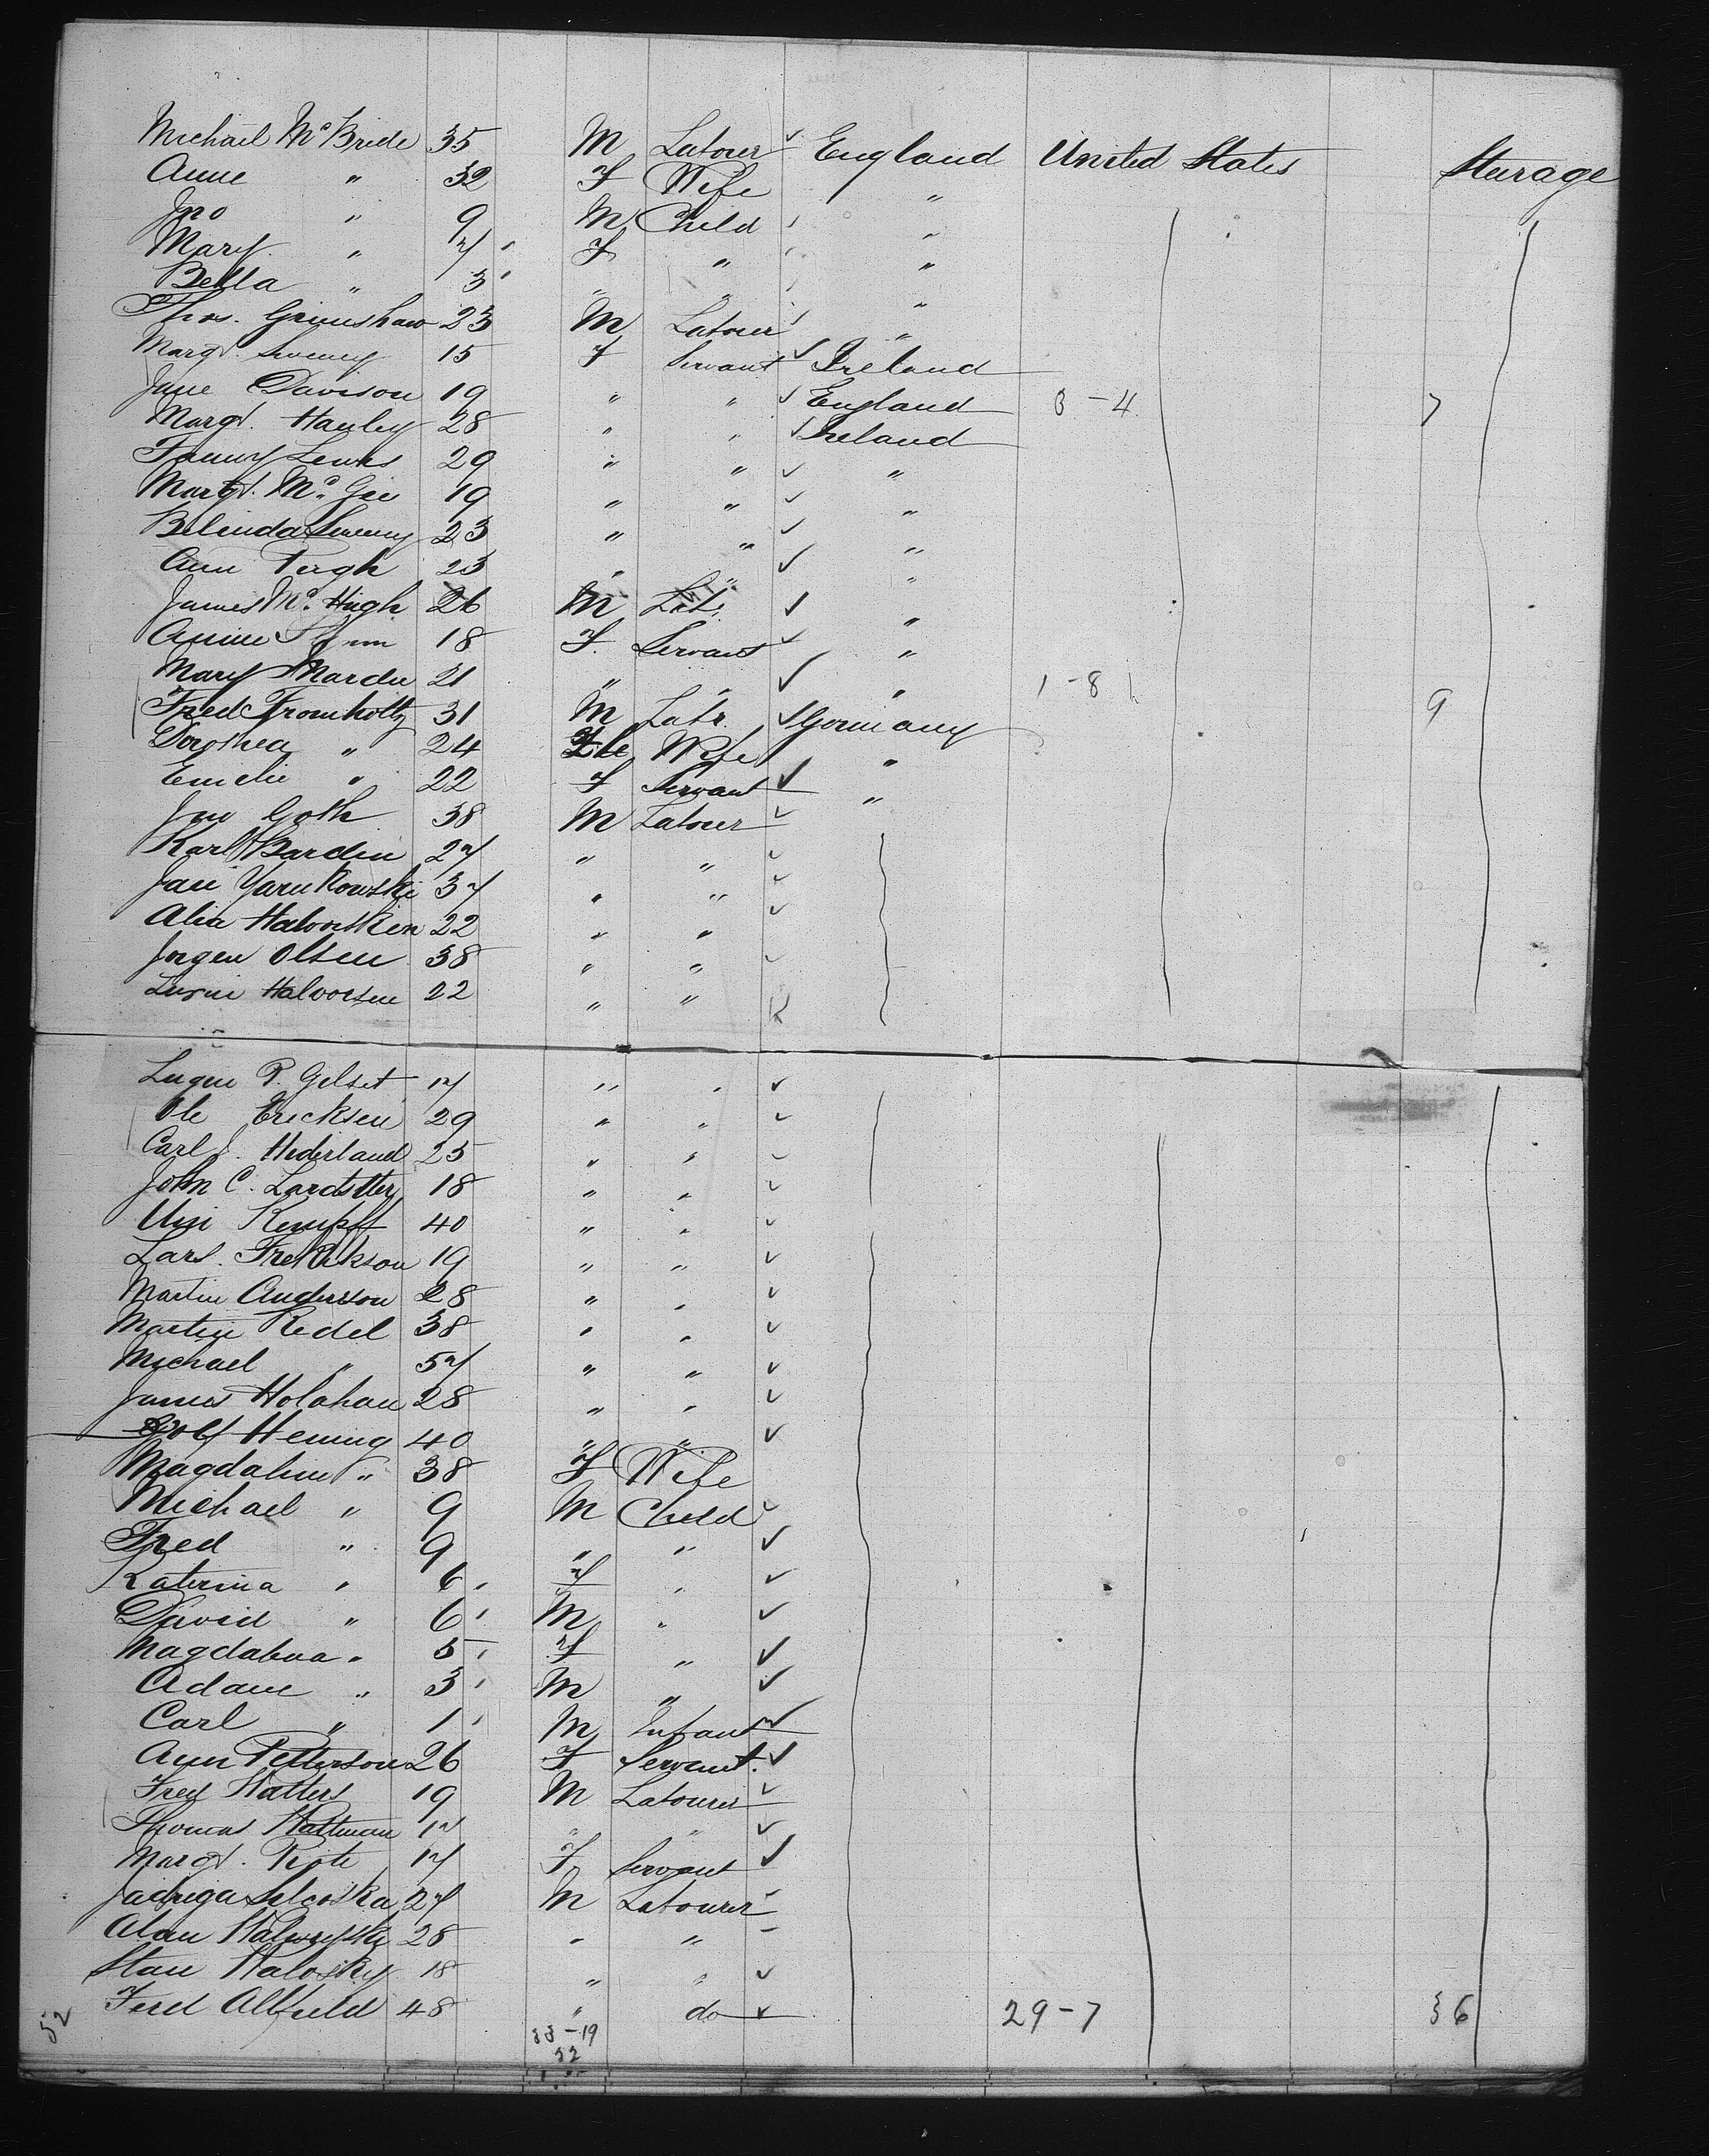 Michael McBride 35 M Labourer England United States Steerage
Anne " 32 F Wife "
Jno " 9 M Child "
Mary " 7 F " "
Bella " 3 " " "
Thos. Grimshaw 23 M Labourer "
Margt. Sweeney 15 F Servant Ireland
Jane Davison 19 " " England 3-4 7
Margt. Hanley 28 " " Ireland
Fanny Lewis 29 " " "
Margt. McGee 19 " " "
Belinda Sweeney 23 " " "
Ann 23 " " "
James McHugh 26 M Lab. "
Annie 18 F. Servant "
Mary 21 " " " 1-8 9
Fred Fromholtz 31 M Labr. Germany
Dorothea " 24 Wife "
Emelie " 22 F Servant "
Jno Goth 38 M Labourer
Karl Bardin 27 " "
Jan Yarukowski 37 " "
22 " "
Jorgen Olsen 38 " "
Halvorsen 22 " "
P. Gelset 17 " "
Ole Ericksen 29 " "
Carl J. Hederland 25 " "
John C. 18 " "
Kempff 40 " "
Lars. Fredrikson 19 " "
Martin Anderson 28 " "
Martin Redel 38 " "
Michael " 57 " "
James Holahan 28 " "
Hening 40 " "
Magdalena " 38 F Wife
Michael " 9 M Child
Fred " 9 " "
Katerina " 6 F "
David " 6 M "
Magdalena " 5 F "
Adam " 3 M "
Carl " 1 M Infant
Ann Petterson 26 F Servant.
Fred Watters 19 M Labourer
Thomas 17 " "
Margt. 17 F Servant
Jadwiga 27 M Labourer
28 " "
Stan 18 " "
Ferd Altfield 48 " do 29-7 36
52 33-19
52